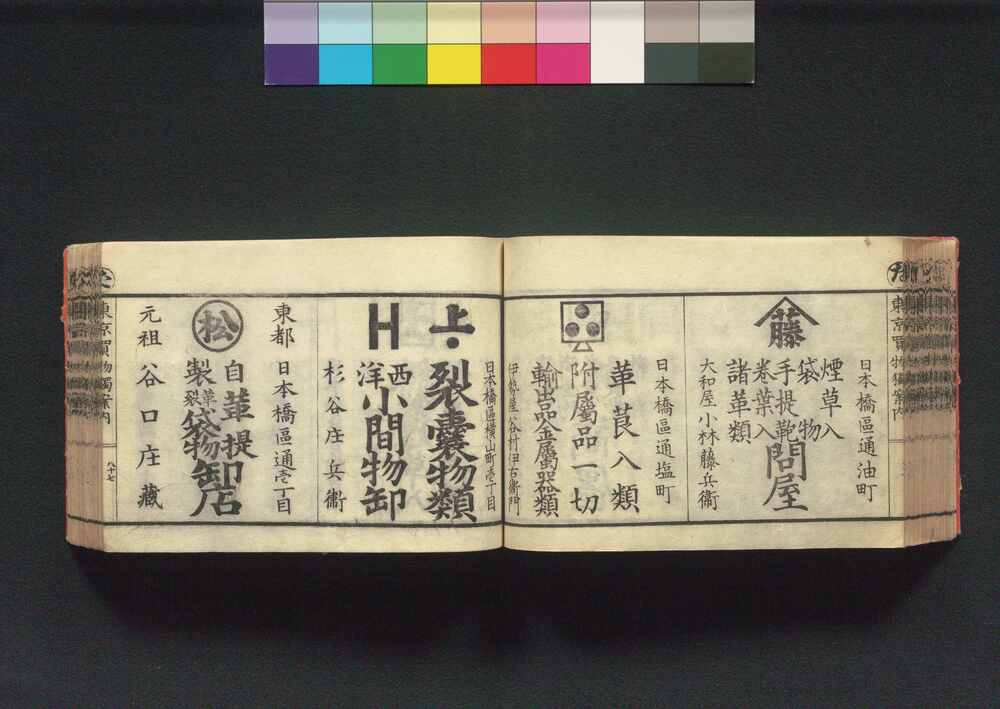 東京買物獨案内
日本橋區通油町
藤
煙草入
袋物
手提鞄
巻葉入
諸革類
問屋
大和屋小林藤兵衞
日本橋區通塩町
革莨入類
附屬品一切
輸出品金屬器類
伊勢屋谷村伊右衞門
日本橋區横山町壱丁目
上
裂囊物類
H
西洋小間物卸
杉谷庄兵衞
東都
日本橋區通壱丁目
松
自革提
製革裂袋物卸店
元祖谷口庄藏
東京買物獨案内
八十七